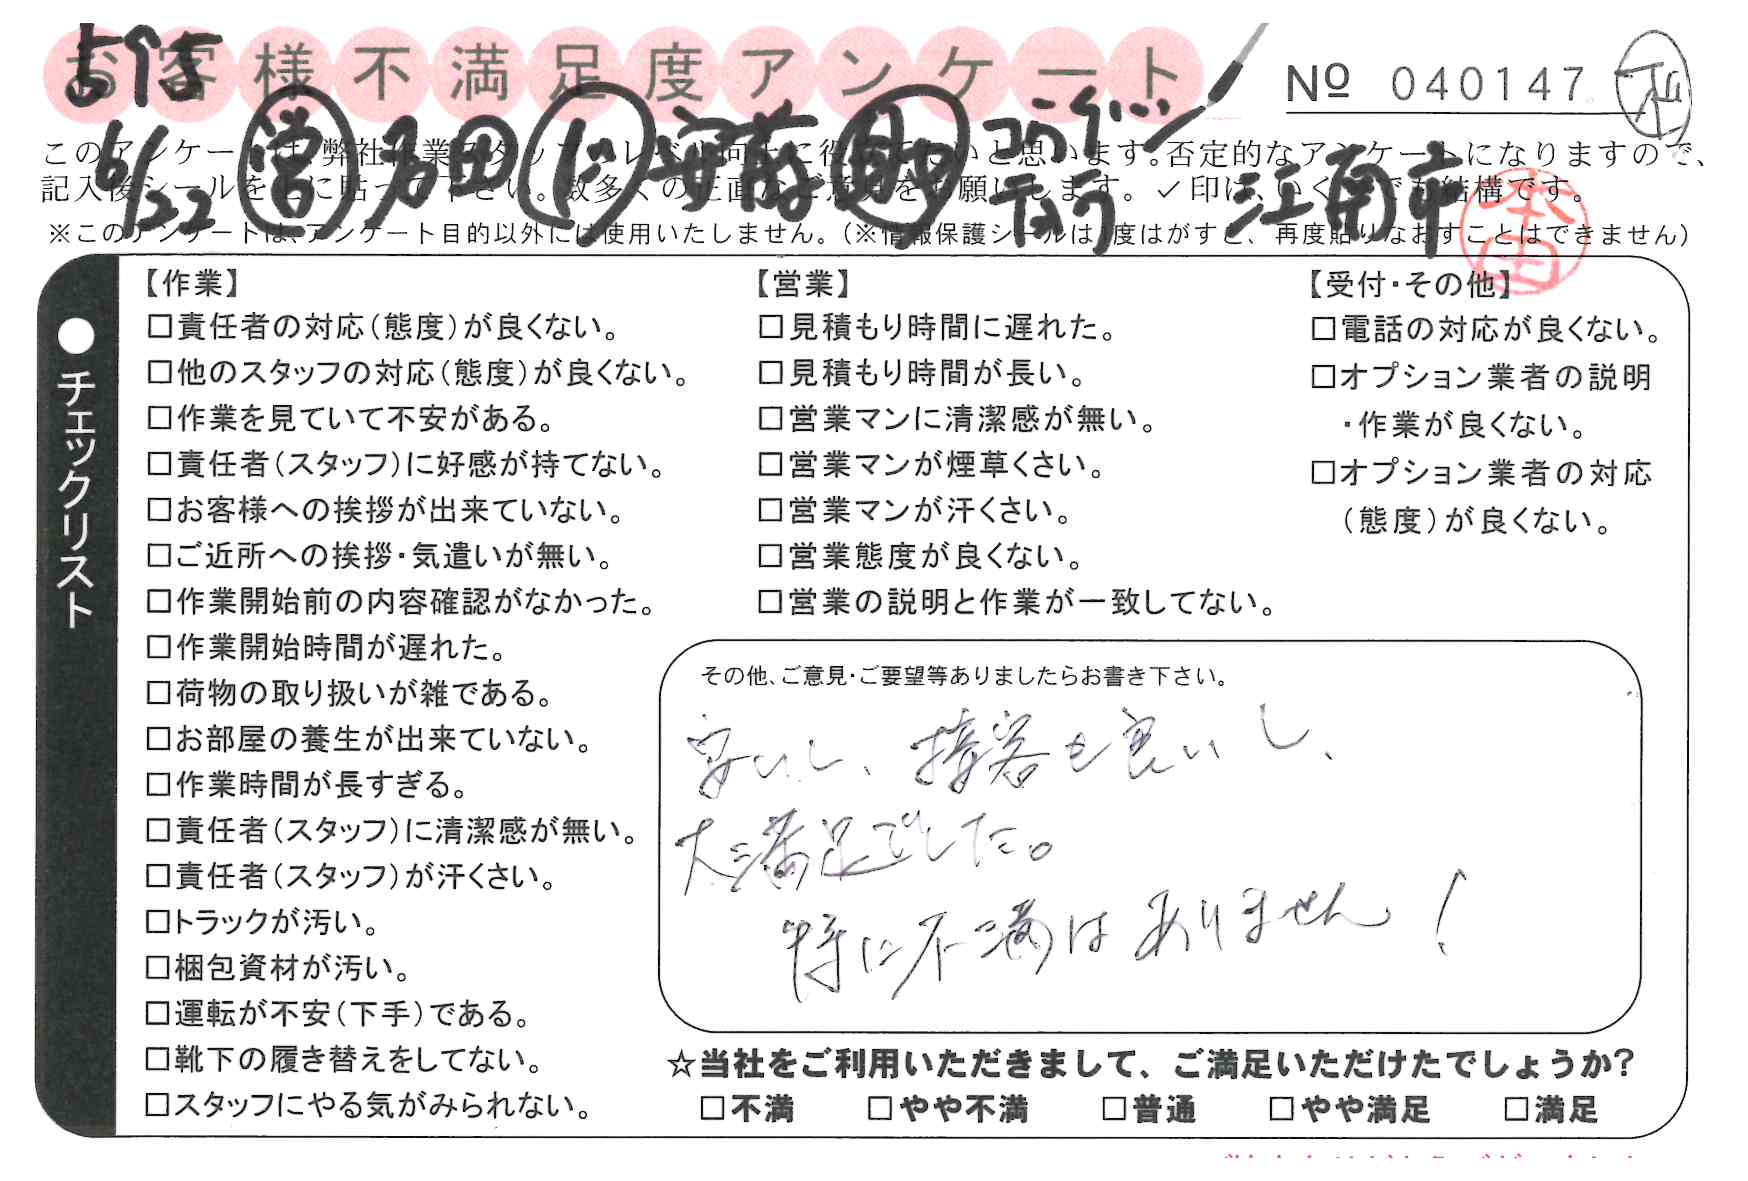 お客様不満足度アンケート
№ 040147
6/22 営 乃田 ド 安藤 助
江南市
本田
このアンケートは、弊社作業スタッフのレベル向上に役立てたいと思います。否定的なアンケートになりますので、
記入後シールを上に貼って下さい。数多くの正直なご意見をお願いします。✓印は、いくつでも結構です。
※このアンケートは、アンケート目的以外には使用いたしません。（※情報保護シールは1度はがすと、再度貼りなおすことはできません）
●チェックリスト
【作業】
□責任者の対応（態度）が良くない。
□他のスタッフの対応（態度）が良くない。
□作業を見ていて不安がある。
□責任者（スタッフ）に好感が持てない。
□お客様への挨拶が出来ていない。
□ご近所への挨拶・気遣いが無い。
□作業開始前の内容確認がなかった。
□作業開始時間が遅れた。
□荷物の取り扱いが雑である。
□お部屋の養生が出来ていない。
□作業時間が長すぎる。
□責任者（スタッフ）に清潔感が無い。
□責任者（スタッフ）が汗くさい。
□トラックが汚い。
□梱包資材が汚い。
□運転が不安（下手）である。
□靴下の履き替えをしてない。
□スタッフにやる気がみられない。
【営業】
□見積もり時間に遅れた。
□見積もり時間が長い。
□営業マンに清潔感が無い。
□営業マンが煙草くさい。
□営業マンが汗くさい。
□営業態度が良くない。
□営業の説明と作業が一致してない。
【受付・その他】
□電話の対応が良くない。
□オプション業者の説明
・作業が良くない。
□オプション業者の対応
（態度）が良くない。
その他、ご意見・ご要望等ありましたらお書き下さい。
安いし、接客も良いし、
大満足でした。
特に不満はありません！
☆当社をご利用いただきまして、ご満足いただけたでしょうか？
□不満 □やや不満 □普通 □やや満足 □満足